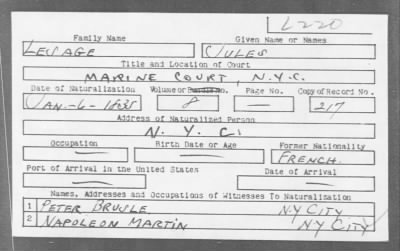 L220
Family Name Given Name or Names
LESAGE JULES
Title and Location of Court
MARINE COURT, N.Y.C.
Date of Naturalization Volume or Bundle No. Page No. Copy of Record No.
JAN.-6-1835 8 — 217
Address of Naturalized Person
N.Y.C.
Occupation Birth Date or Age Former Nationality
— — FRENCH.
Port of Arrival in the United States Date of Arrival
— —
Names, Addresses and Occupations of Witnesses To Naturalization
1 PETER BRUSLE N.Y CITY
2 NAPOLEON MARTIN N.Y CITY